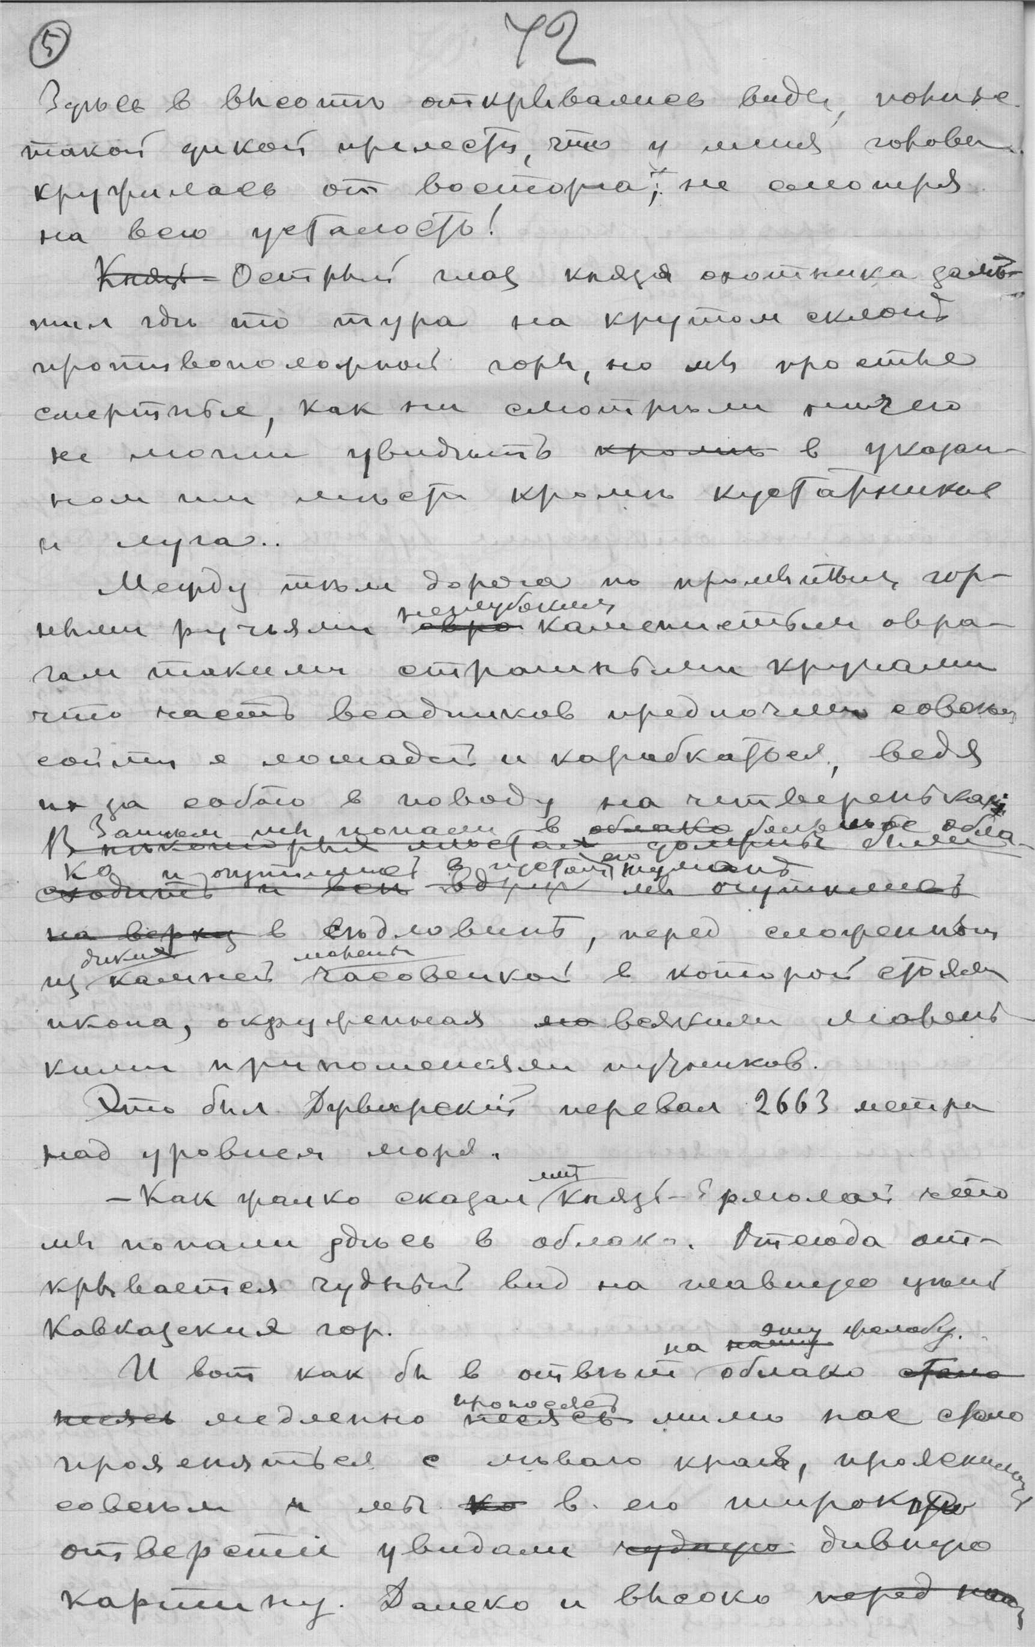 5
72
Здѣсь в высотѣ открывались виды,
такой дикой прелести, что у меня голова
кружилась от восторга, не смотря
на всю усталость!
Князь Острый глаз князя охотника замѣ-
тил гдѣ то тура на крутом склонѣ
противоположной горы, но мы простые
смертные, как ни смотрѣли ничего
не могли увидѣть кромѣ в указан-
ном им мѣстѣ кромѣ кустарников
и луга..
Между тѣм дорога по промытым гор-
ными ручьями овра неглубоким каменистым овра-
гам такими страшными кручами
что часть всадников предпочли совсѣм
сойти с лошадей и карабкаться, ведя
их за собою в поводу на четвереньках
Затѣм мы попали в облако бѣлое обла-
В нѣкоторых мѣстах должны были
ко и очутились в густом туманѣ
сходить и всѣ вдруг мы очутились
на верху в сѣдловинѣ, перед сложенной
из диких камней маленькой часовенкой в которой стояла
икона, окруженная по всякими малень-
кими приношениями путников.
Это был перевал 2663 метра
над уровнем моря.
– Как жалко сказал мнѣ Князь что
мы попали здѣсь в облако. Отсюда от-
крывается чудный вид на главную цѣпь
Кавказския гор.
И вот как бы в отвѣт на нашу эту жалобу облако стало
несясь медленно несясь проносясь мимо нас стало
проясняться с лѣваго края, прояснилось
совсѣм и мы ко в его широкое
отверстіе увидали чудную дивную
картину. Далеко и высоко перед нами